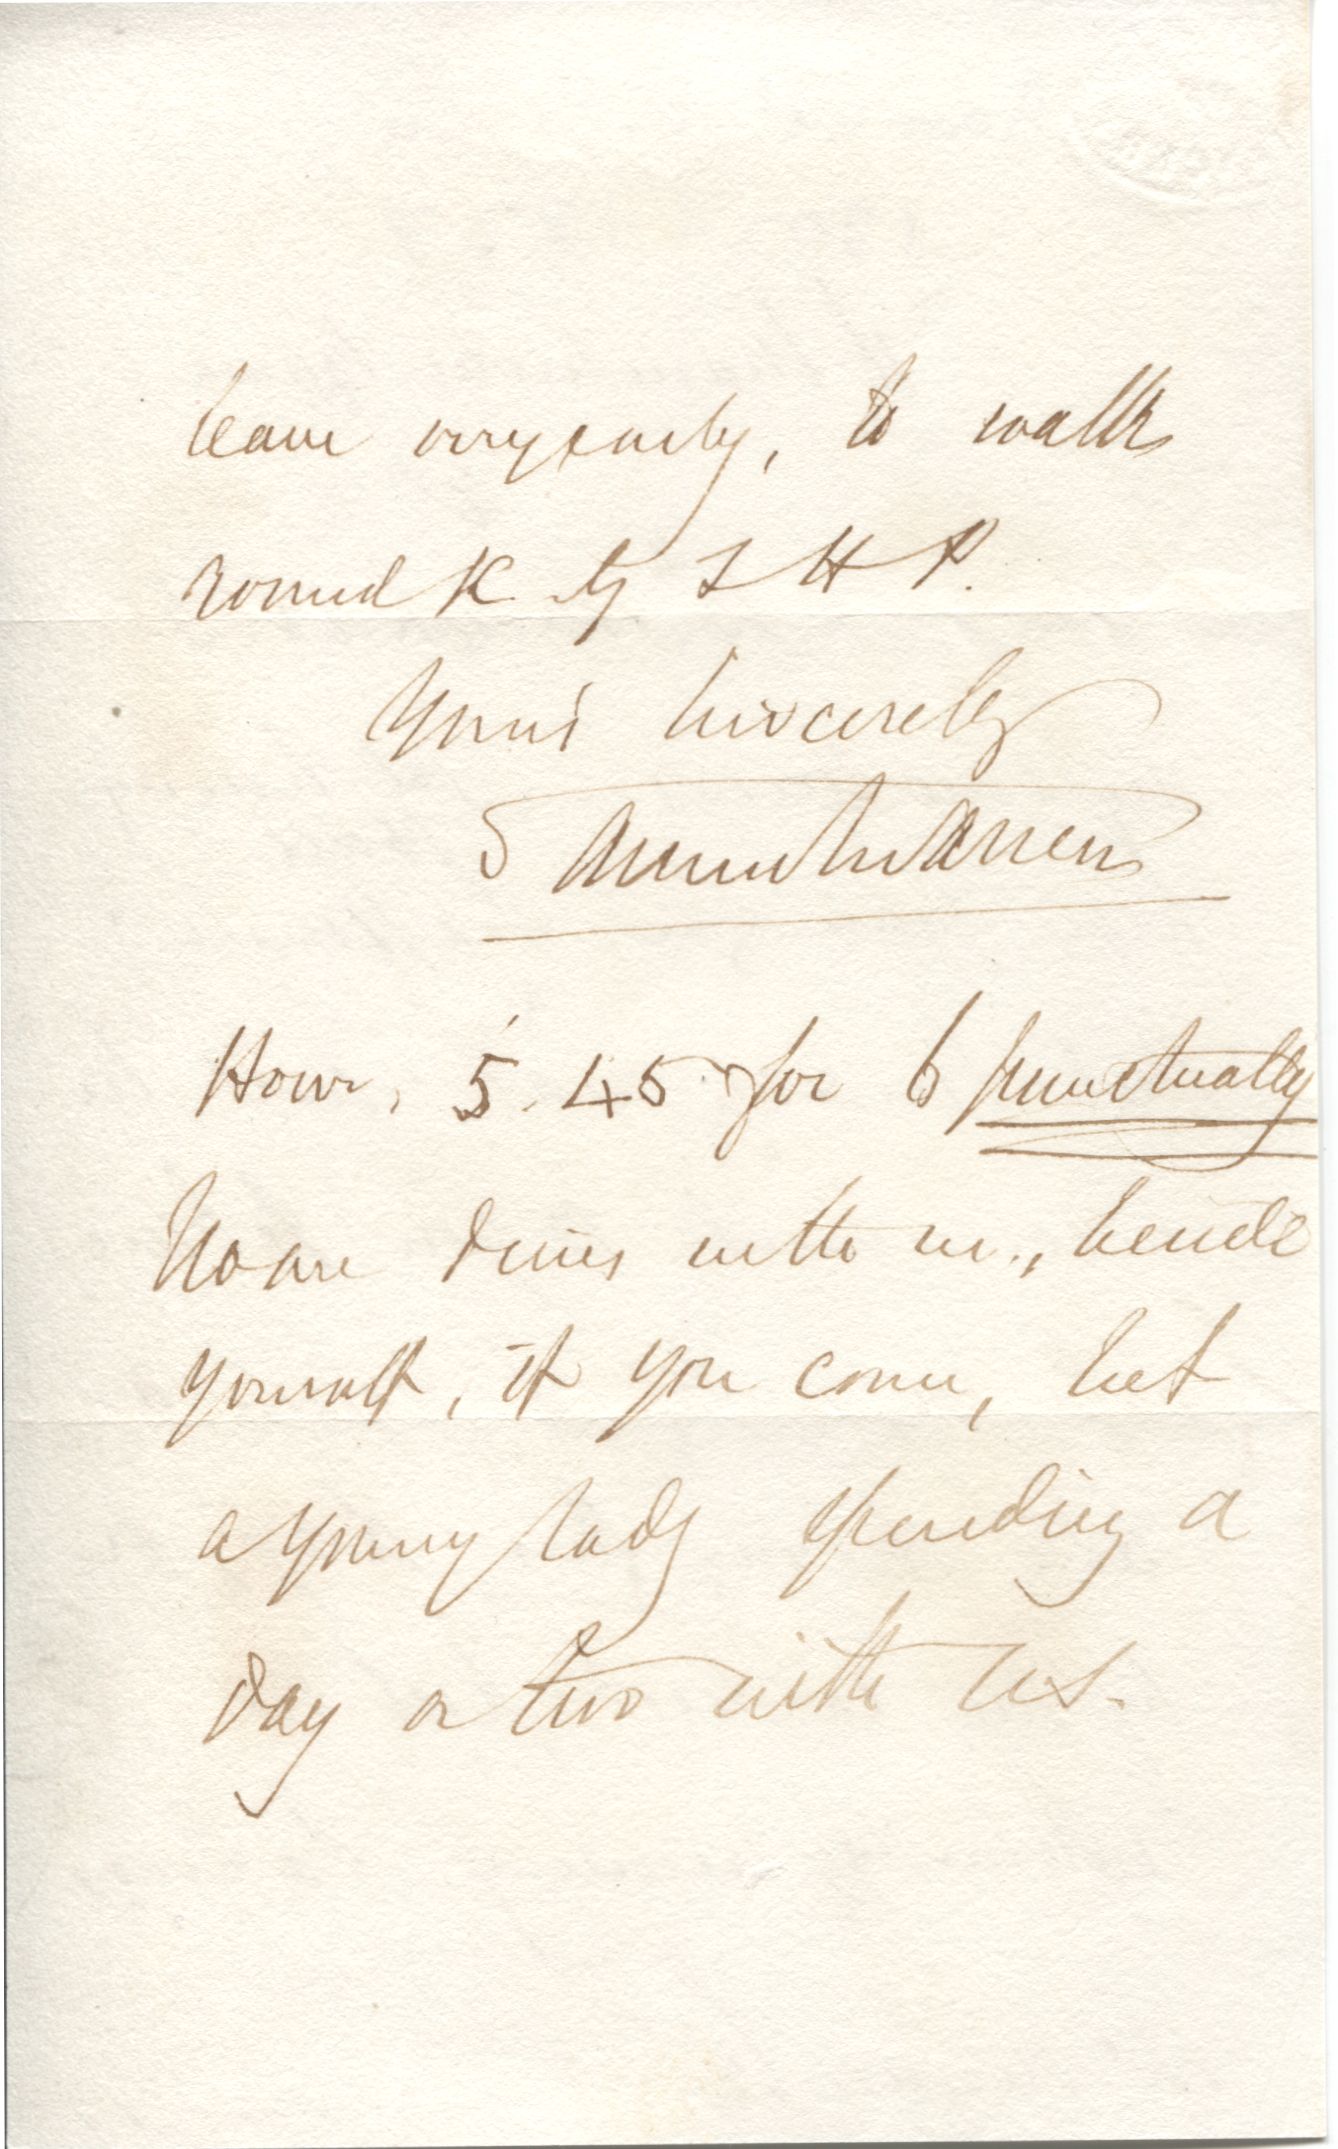 leave very early, to walk
round K. G & H P.
Yours sincerely
Samuel Warren
Hour, 5.45 for 6 punctually
No one dines with us, beside
yourself, if you come, but
a young lady spending a
day or two with us.